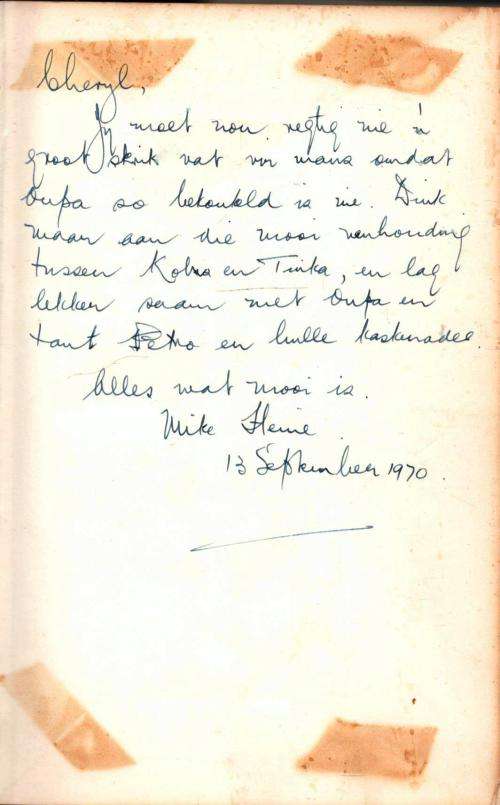 Cheryl,
Jy moet nou regtig nie 'n
groot skrik vat vir mans omdat
Oupa so bekonkeld is nie. Dink
maar aan die mooi verhouding
tussen Kobra en Tinka, en lag
lekker saam met Oupa en
tant Petro en hulle kaskenades.
Alles wat mooi is.
Mike Heine
13 September 1970.